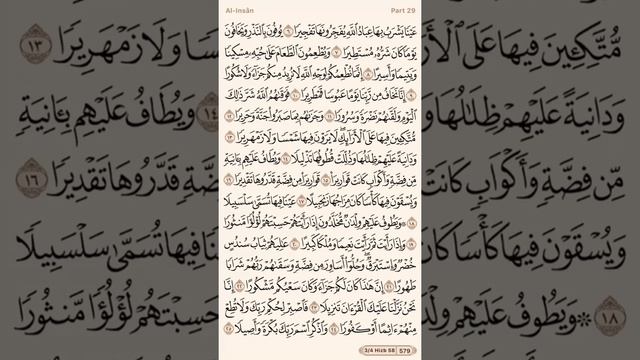 Al-Insān
Part 29
عَيْنًا يَشْرَبُ بِهَا عِبَادُ ٱللَّهِ يُفَجِّرُونَهَا تَفْجِيرًا ٦ يُوفُونَ بِٱلنَّذْرِ وَيَخَافُونَ
يَوْمًا كَانَ شَرُّهُۥ مُسْتَطِيرًا ٧ وَيُطْعِمُونَ ٱلطَّعَامَ عَلَىٰ حُبِّهِۦ مِسْكِينًا
وَيَتِيمًا وَأَسِيرًا ٨ إِنَّمَا نُطْعِمُكُمْ لِوَجْهِ ٱللَّهِ لَا نُرِيدُ مِنكُمْ جَزَآءً وَلَا شُكُورًا
٩ إِنَّا نَخَافُ مِن رَّبِّنَا يَوْمًا عَبُوسًا قَمْطَرِيرًا ١٠ فَوَقَىٰهُمُ ٱللَّهُ شَرَّ ذَٰلِكَ
ٱلْيَوْمِ وَلَقَّىٰهُمْ نَضْرَةً وَسُرُورًا ١١ وَجَزَىٰهُم بِمَا صَبَرُوا۟ جَنَّةً وَحَرِيرًا ١٢
مُّتَّكِـِٔينَ فِيهَا عَلَى ٱلْأَرَآئِكِ ۖ لَا يَرَوْنَ فِيهَا شَمْسًا وَلَا زَمْهَرِيرًا ١٣
وَدَانِيَةً عَلَيْهِمْ ظِلَٰلُهَا وَذُلِّلَتْ قُطُوفُهَا تَذْلِيلًا ١٤ وَيُطَافُ عَلَيْهِم بِـَٔانِيَةٍ
مِّن فِضَّةٍ وَأَكْوَابٍ كَانَتْ قَوَارِيرَا۠ ١٥ قَوَارِيرَا۟ مِن فِضَّةٍ قَدَّرُوهَا تَقْدِيرًا ١٦
وَيُسْقَوْنَ فِيهَا كَأْسًا كَانَ مِزَاجُهَا زَنجَبِيلًا ١٧ عَيْنًا فِيهَا تُسَمَّىٰ سَلْسَبِيلًا
١٨ ۞ وَيَطُوفُ عَلَيْهِمْ وِلْدَٰنٌ مُّخَلَّدُونَ إِذَا رَأَيْتَهُمْ حَسِبْتَهُمْ لُؤْلُؤًا مَّنثُورًا
١٩ وَإِذَا رَأَيْتَ ثَمَّ رَأَيْتَ نَعِيمًا وَمُلْكًا كَبِيرًا ٢٠ عَٰلِيَهُمْ ثِيَابُ سُندُسٍ
خُضْرٌ وَإِسْتَبْرَقٌ ۖ وَحُلُّوٓا۟ أَسَاوِرَ مِن فِضَّةٍ وَسَقَىٰهُمْ رَبُّهُمْ شَرَابًا
طَهُورًا ٢١ إِنَّ هَٰذَا كَانَ لَكُمْ جَزَآءً وَكَانَ سَعْيُكُم مَّشْكُورًا ٢٢ إِنَّا
نَحْنُ نَزَّلْنَا عَلَيْكَ ٱلْقُرْءَانَ تَنزِيلًا ٢٣ فَٱصْبِرْ لِحُكْمِ رَبِّكَ وَلَا تُطِعْ
مِنْهُمْ ءَاثِمًا أَوْ كَفُورًا ٢٤ وَٱذْكُرِ ٱسْمَ رَبِّكَ بُكْرَةً وَأَصِيلًا ٢٥
3/4 Hizb 58
579